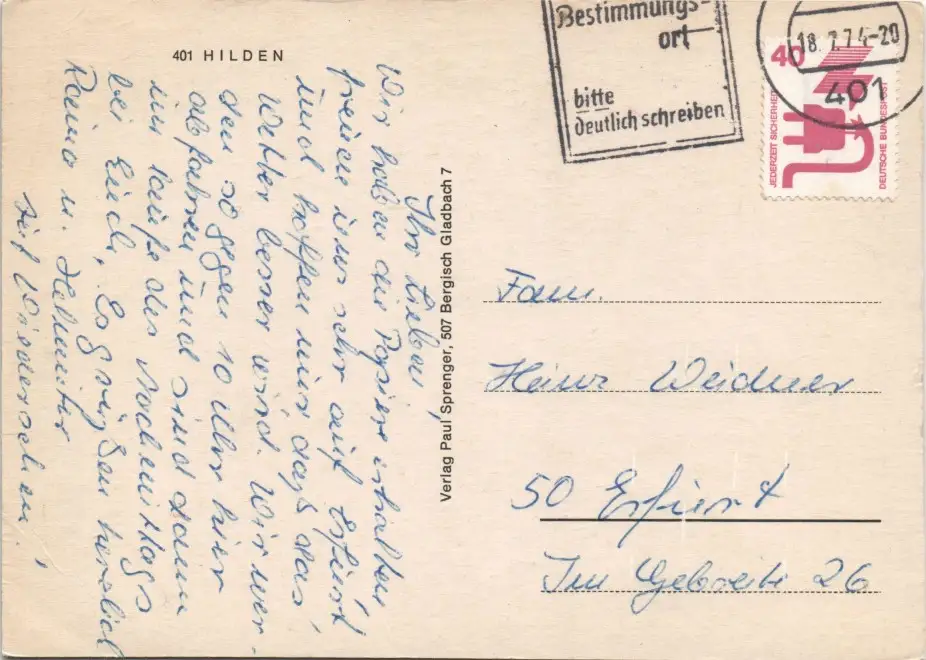 401 HILDEN
Ihr Lieben,
Wir haben die Papiere erhalten
freuen uns sehr auf Erfurt
und hoffen nur daß das
Wetter besser wird. Wir wer-
den so gegen 10 Uhr hier
abfahren und sind dann
im Laufe des Nachmittags
bei Euch. Es grüßen herzlich
Raimo u. Helmuter
auf Wiedersehen!
Verlag Paul Sprenger, 507 Bergisch Gladbach 7
Bestimmungs-
ort
bitte
deutlich schreiben
74-20
401
40
JEDERZEIT SICHERHEIT
DEUTSCHE BUNDESPOST
Fam.
Heinz Weidner
50 Erfurt
Im Gebreite 26